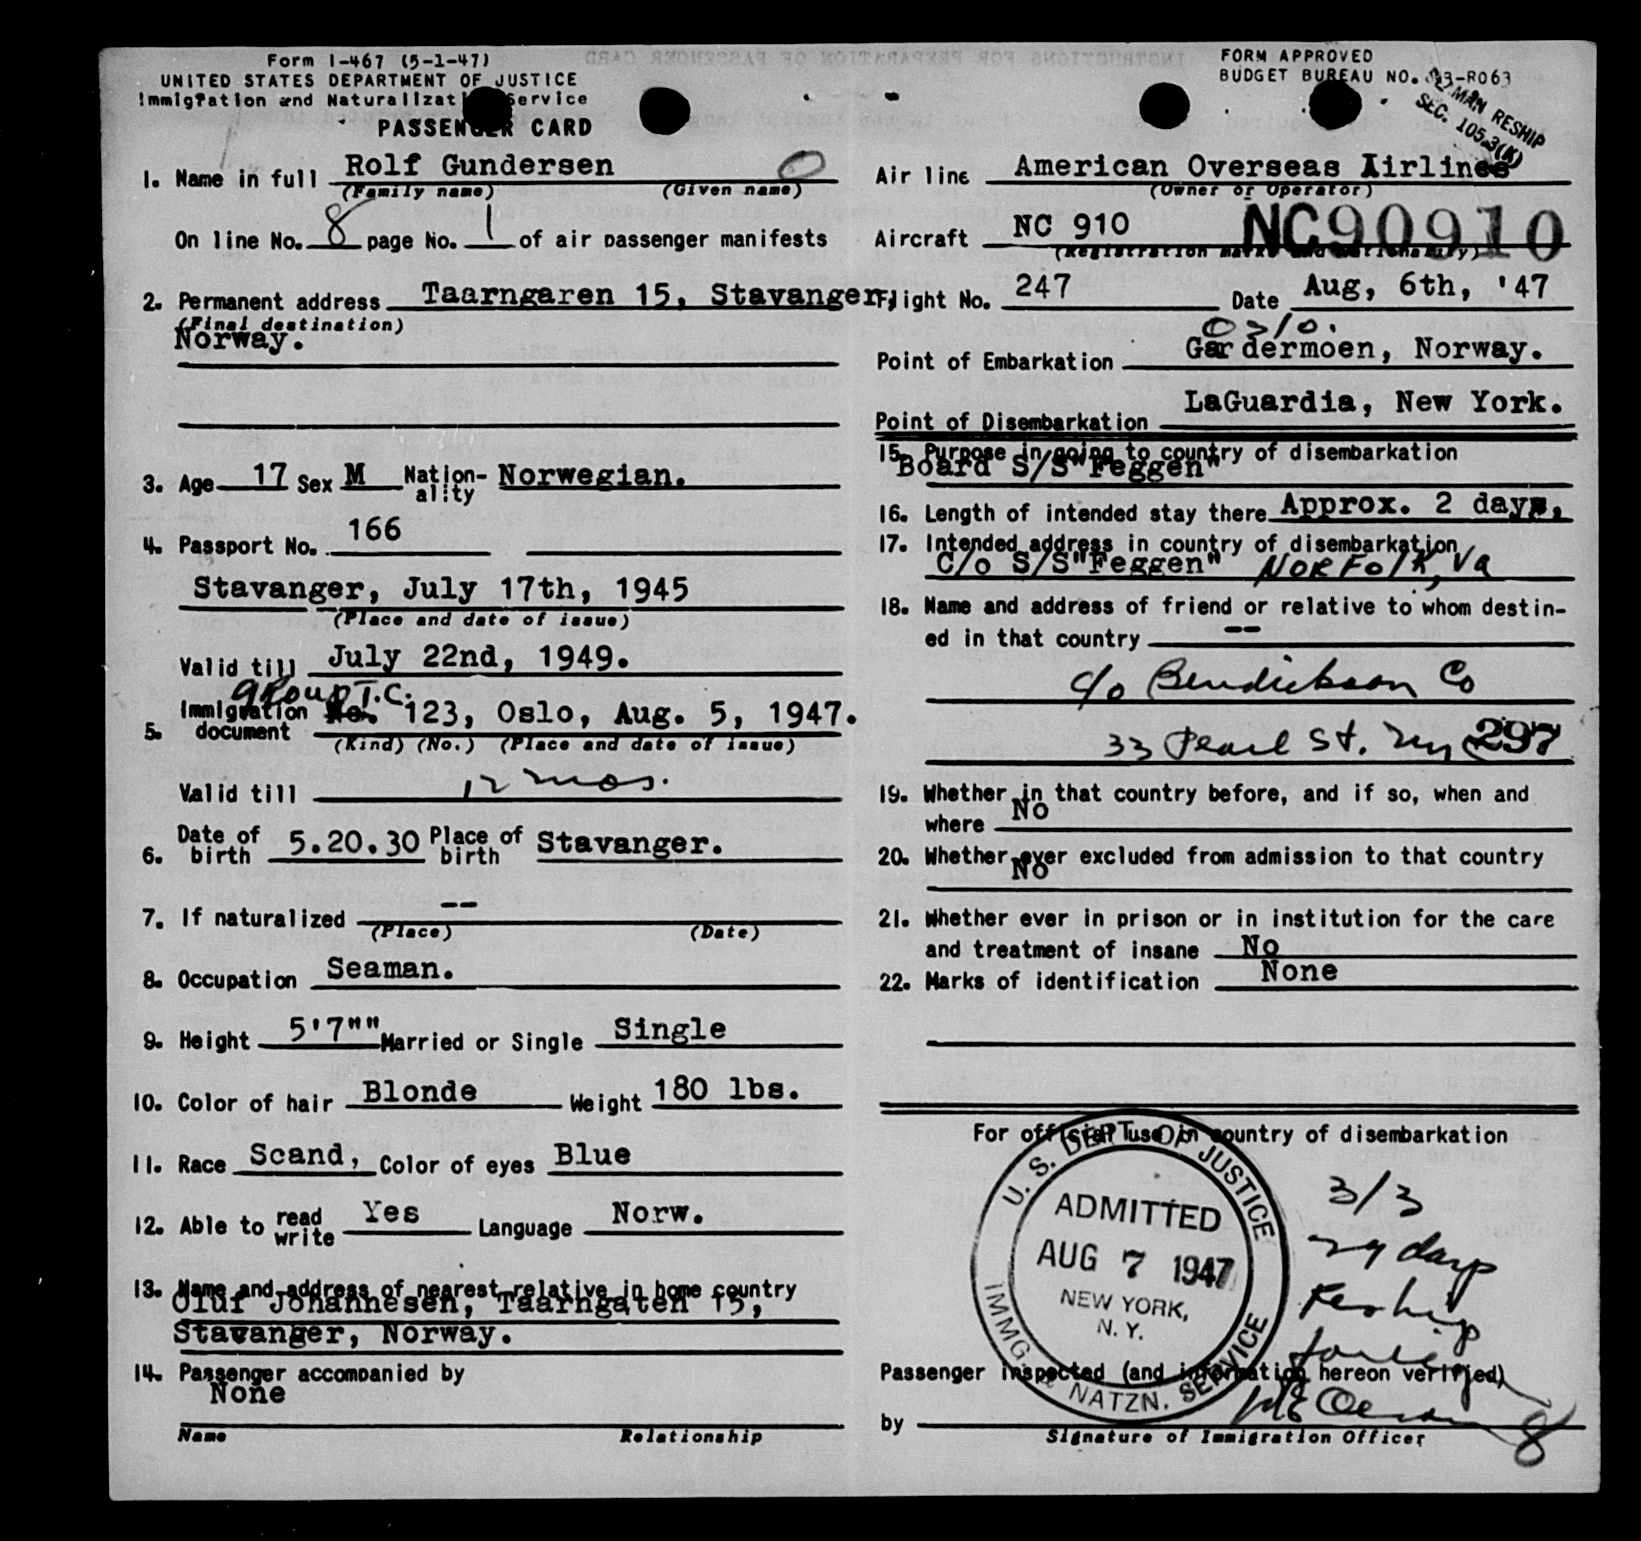 Form I-467 (5-1-47)
UNITED STATES DEPARTMENT OF JUSTICE
Immigration and Naturalization Service
PASSENGER CARD
FORM APPROVED
BUDGET BUREAU NO. 43-R063
RESHIP
SEC. 105.3(K)
1. Name in full Rolf Gundersen
(Family name) (Given name)
On line No. 8 page No. 1 of air passenger manifests
2. Permanent address Taarngaren 15, Stavanger,
(Final destination)
Norway.
3. Age 17 Sex M Nationality Norwegian.
4. Passport No. 166
Stavanger, July 17th, 1945
(Place and date of issue)
Valid till July 22nd, 1949.
group T.C.
5. Immigration document No. 123, Oslo, Aug. 5, 1947.
(Kind) (No.) (Place and date of issue)
Valid till 12 mos.
6. Date of birth 5.20.30 Place of birth Stavanger.
7. If naturalized --
(Place) (Date)
8. Occupation Seaman.
9. Height 5'7"" Married or Single Single
10. Color of hair Blonde Weight 180 lbs.
11. Race Scand, Color of eyes Blue
12. Able to read write Yes Language Norw.
13. Name and address of nearest relative in home country
Oluf Johannesen, Taarngaten 15,
Stavanger, Norway.
14. Passenger accompanied by
None
Name Relationship
Air line American Overseas Airlines
(Owner or Operator)
Aircraft NC 910 NC90910
(Registration marks and nationality)
Flight No. 247 Date Aug, 6th, '47
Oslo.
Point of Embarkation Gardermoen, Norway.
Point of Disembarkation LaGuardia, New York.
15. Purpose in going to country of disembarkation
Board S/S"Feggen"
16. Length of intended stay there Approx. 2 days,
17. Intended address in country of disembarkation
C/o S/S"Feggen" NORFOLK, Va
18. Name and address of friend or relative to whom destin-
ed in that country --
c/o Bendickson Co
33 Pearl St. NY 297
19. Whether in that country before, and if so, when and
where No
20. Whether ever excluded from admission to that country
No
21. Whether ever in prison or in institution for the care
and treatment of insane No
22. Marks of identification None
For official use in country of disembarkation
U. S. DEPT. OF JUSTICE
ADMITTED
AUG 7 1947
NEW YORK,
N. Y.
IMMG. & NATZN. SERVICE
3/3
29 days
Reship
Passenger inspected (and information hereon verified)
by
Signature of Immigration Officer
8